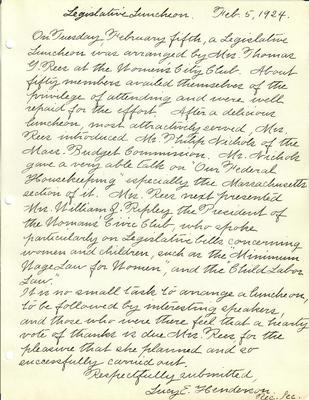 Legislative Luncheon. Feb. 5, 1924.
On Tuesday February fifth, a Legislative
Luncheon was arranged by Mrs. Thomas
G. Rees at the Women's City Club. About
fifty members availed themselves of the
privilege of attending and were well
repaid for the effort. After a delicious
luncheon, most attractively served, Mrs.
Rees introduced Mr. Philip Nichols of the
Mass. Budget Commission. Mr. Nichols
gave a very able talk on "Our Federal
Housekeeping" especially the Massachusetts
section of it. Mrs. Rees next presented
Mrs. William Z. Ripley, the President of
the Womans' Civic Club, who spoke
particularly on Legislative bills concerning
women and children, such as the "Minimum
Wage Law for Women, and the "Child Labor
Law."
It is no small task to arrange a luncheon,
to be followed by interesting speakers,
and those who were there feel that a hearty
vote of thanks is due Mrs. Rees for the
pleasive that she planned and so
successfully carried out.
Respectfully submitted
Lucy E. Henderson,
Rec. Sec.